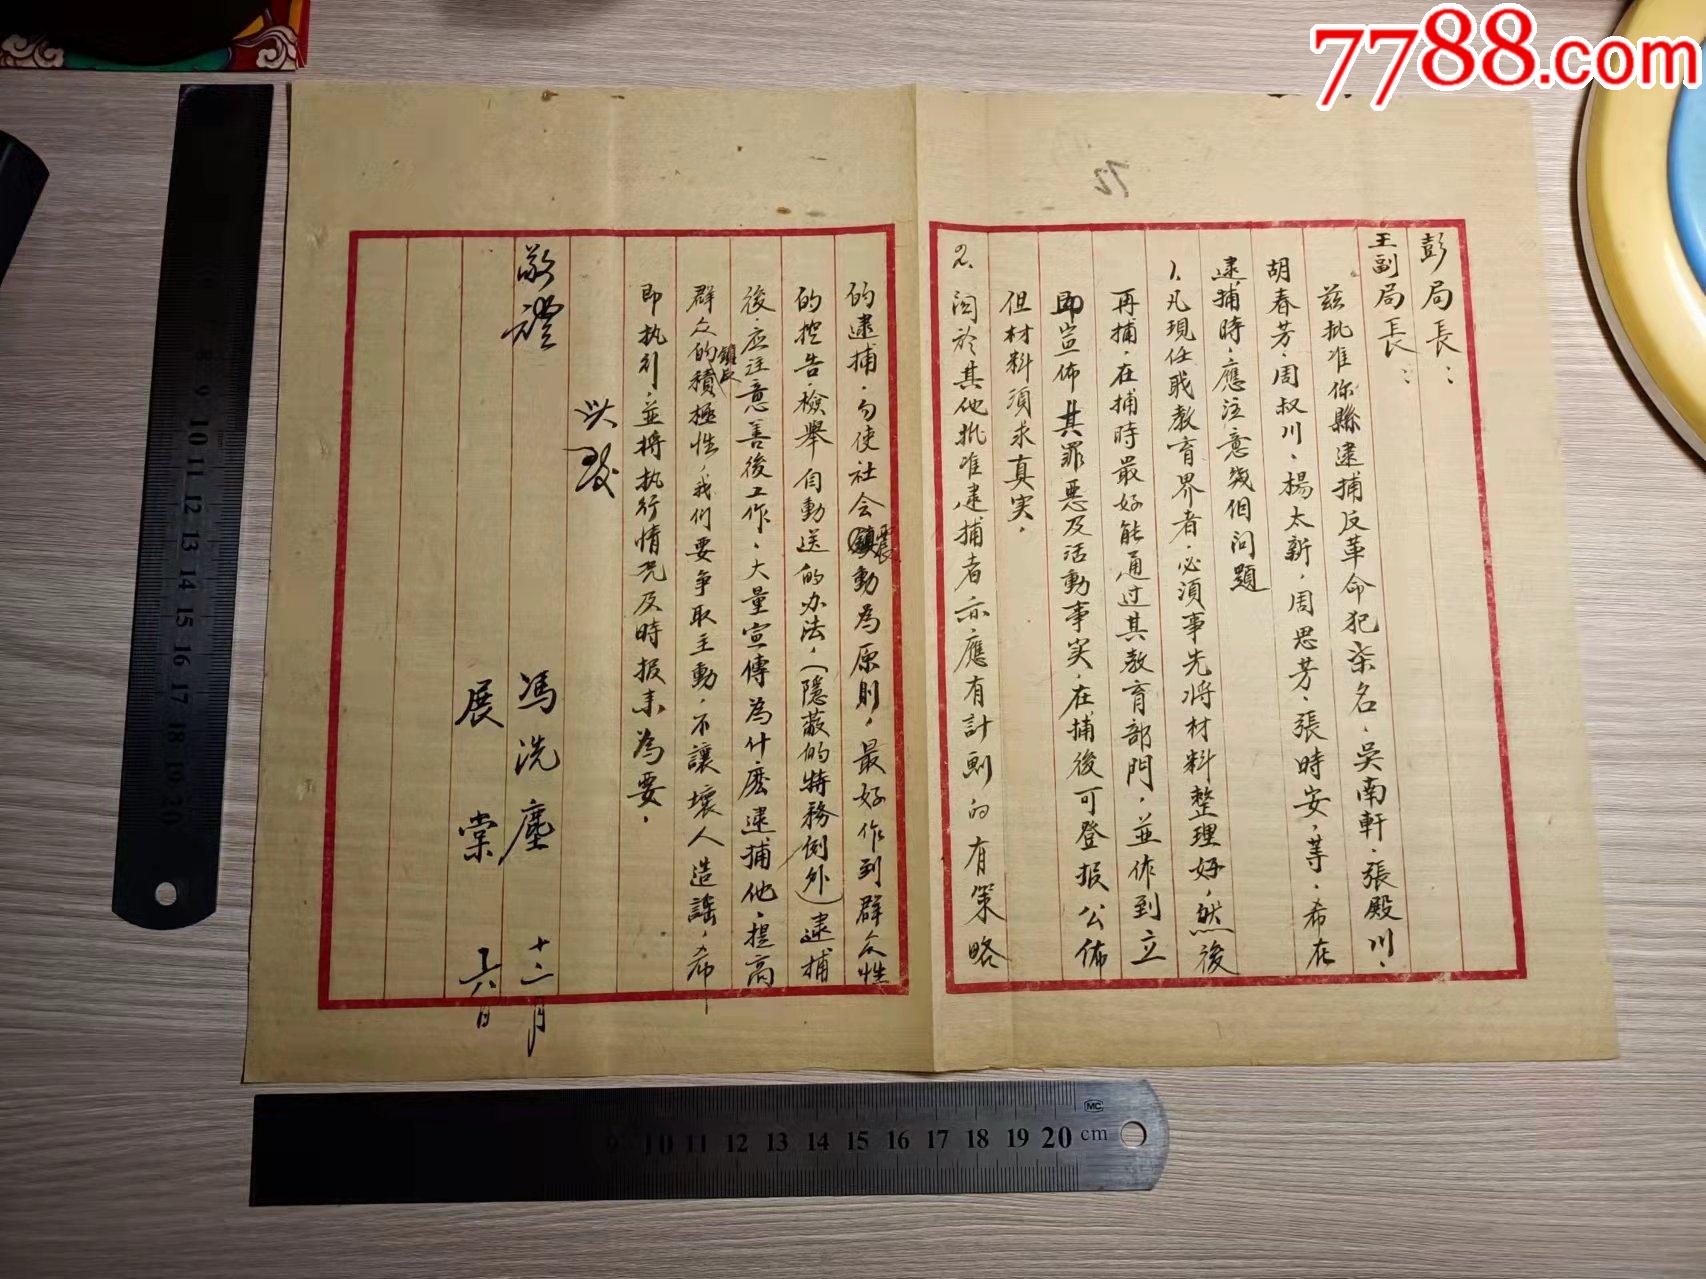 7788.com
彭局長：
王副局長：
茲批准你縣逮捕反革命犯柒名，吳南軒、張殿川、
胡春芳、周叔川、楊太新、周思芳、張時安，等，希在
逮捕時，應注意幾個问題
1.凡現任职教育界者，必須事先将材料整理好，然後
再捕，在捕時最好能通过其教育部門，並作到立
即宣佈其罪惡及活動事实，在捕後可登报公佈
但材料須求真实。
2.関於其他批准逮捕者亦應有計劃的有策略
的逮捕，勿使社会震動為原則，最好作到群众性
的控告，檢舉自動送的办法，（隱蔽的特務例外）逮捕
後，应注意善後工作，大量宣傳為什麽逮捕他，提高
群众的積極性，我们要争取主動，不讓壞人造謡，希
即执行，並将执行情况及時报来為要。
此致
敬禮
馮洗塵
展棠
十二月
十六日
9 10 11 12 13 14 15 16 17 18 19 20
9 10 11 12 13 14 15 16 17 18 19 20 cm
MC